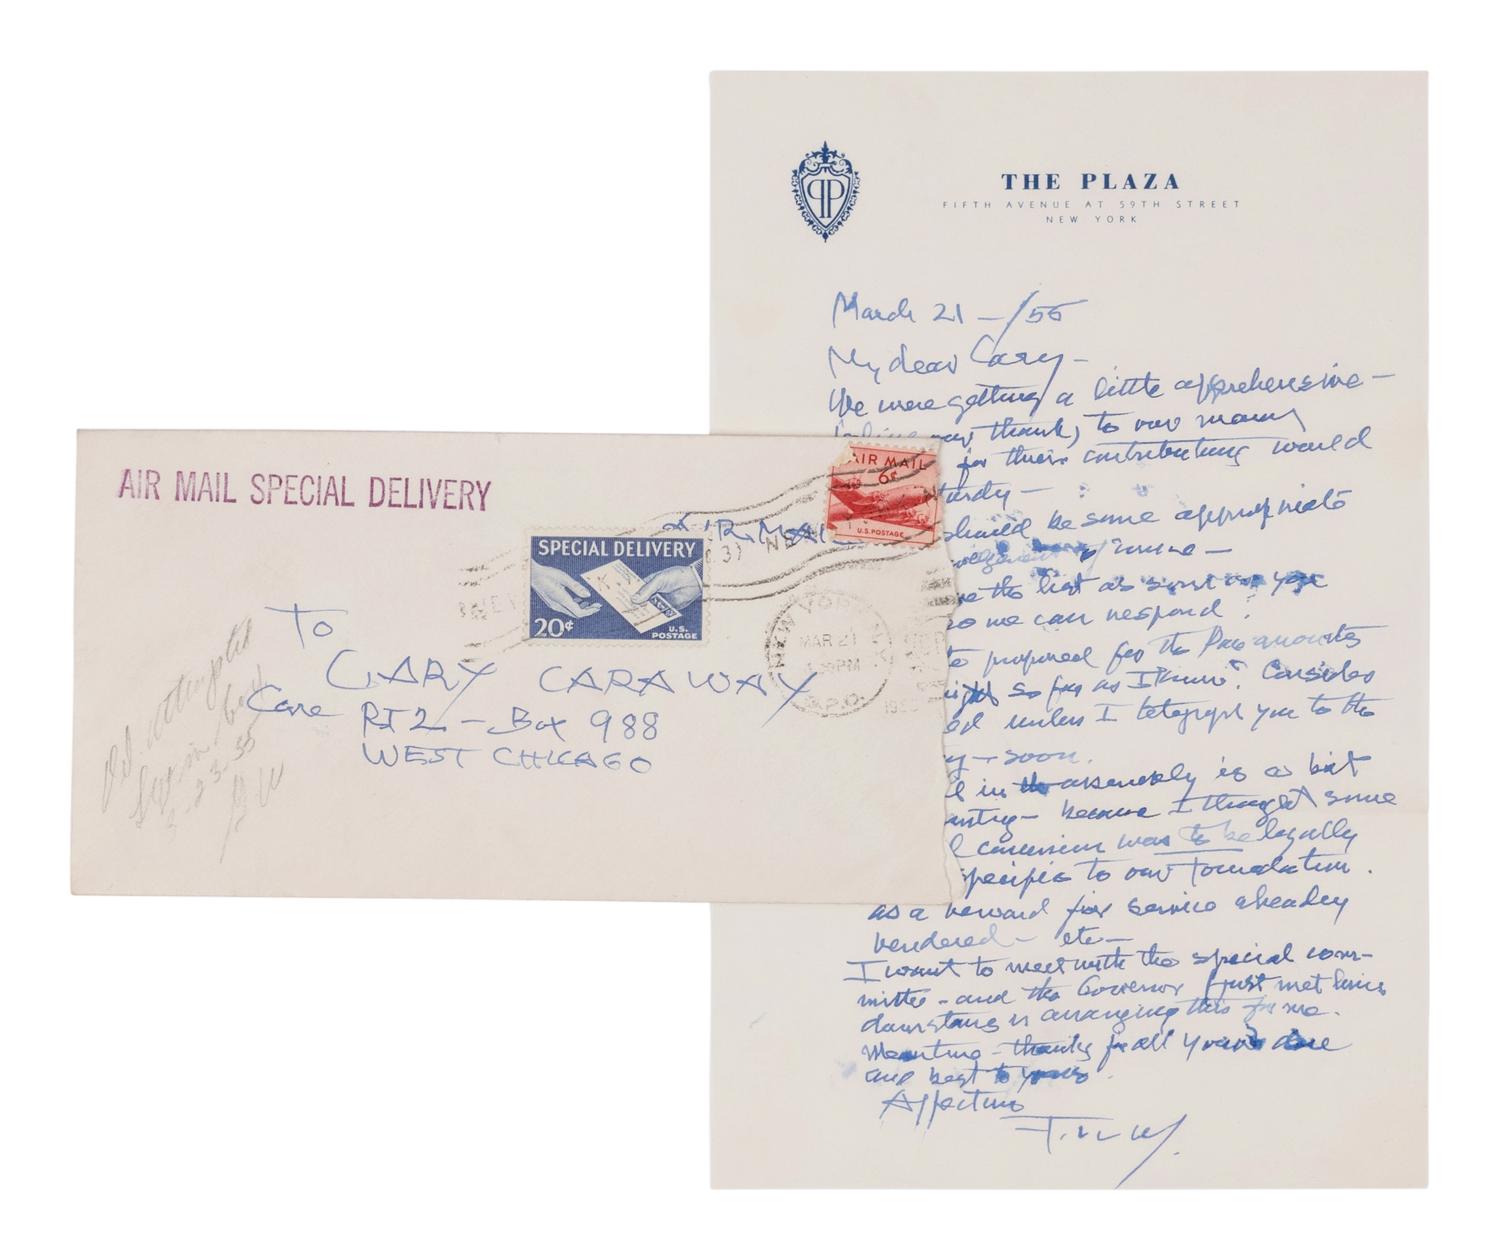 AIR MAIL SPECIAL DELIVERY
AIR MAIL
AIR MAIL
6¢
U.S. POSTAGE
SPECIAL DELIVERY
20¢
U.S.
POSTAGE
NEW YORK, N.Y.
MAR 21
PM
G.P.O.
To
CARY CARAWAY
Care RT 2 - Box 988
WEST CHICAGO
Del. attempted
3-23-55
GW
PP
THE PLAZA
FIFTH AVENUE AT 59TH STREET
NEW YORK
March 21 - /55
My dear Cary -
We were getting a little apprehensive -
our thanks to our many
for their contributing would
tardy -
should be some appropriate
of mine -
the list as sent
so we can respond?
proposed for the
so far as I know? Consider
unless I telegraph you to the
- soon.
in assembly is a bit
- because I thought some
was to be legally
specific to our Foundation.
as a reward for service already
rendered - etc -
I want to meet with the special com-
mittee - and the Governor (just met him
downstairs is arranging this for me.
Meantime - thanks for all you've done
and best to yours.
Affection
F.Ll.W.